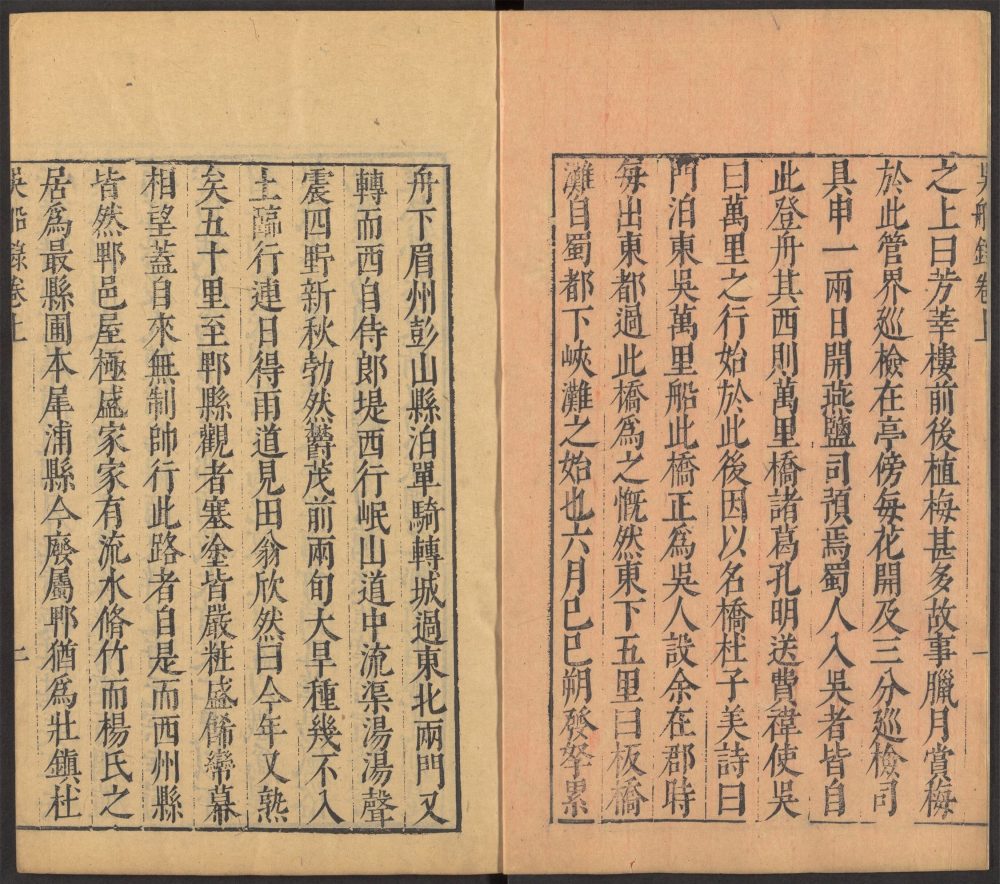 之上曰芳華樓前後植梅甚多故事臘月賞梅
於此管界廵檢在亭傍每花開及三分廵檢司
具申一兩日開燕鹽司預焉蜀人入吳者皆自
此登舟其西則萬里橋諸葛孔明送費禕使吳
曰萬里之行始於此後因以名橋杜子美詩曰
門泊東吳萬里船此橋正為吳人設余在郡時
每出東都過此橋為之慨然東下五里曰板橋
灘自蜀都下峽灘之始也六月己巳朔發孥累
舟下眉州彭山縣泊單騎轉城過東北兩門又
轉而西自侍郎堤西行岷山道中流渠湯湯聲
震四野新秋勃然鬱茂前兩旬大旱種幾不入
土臨行連日得雨道見田翁欣然曰今年又熟
矣五十里至郫縣觀者塞塗皆嚴粧盛飾帟幕
相望蓋自來無制帥行此路者自是而西州縣
皆然郫邑屋極盛家家有流水脩竹而楊氏之
居為最縣圃本犀浦縣今廢屬郫猶為壯鎮杜
吳船錄卷上
二